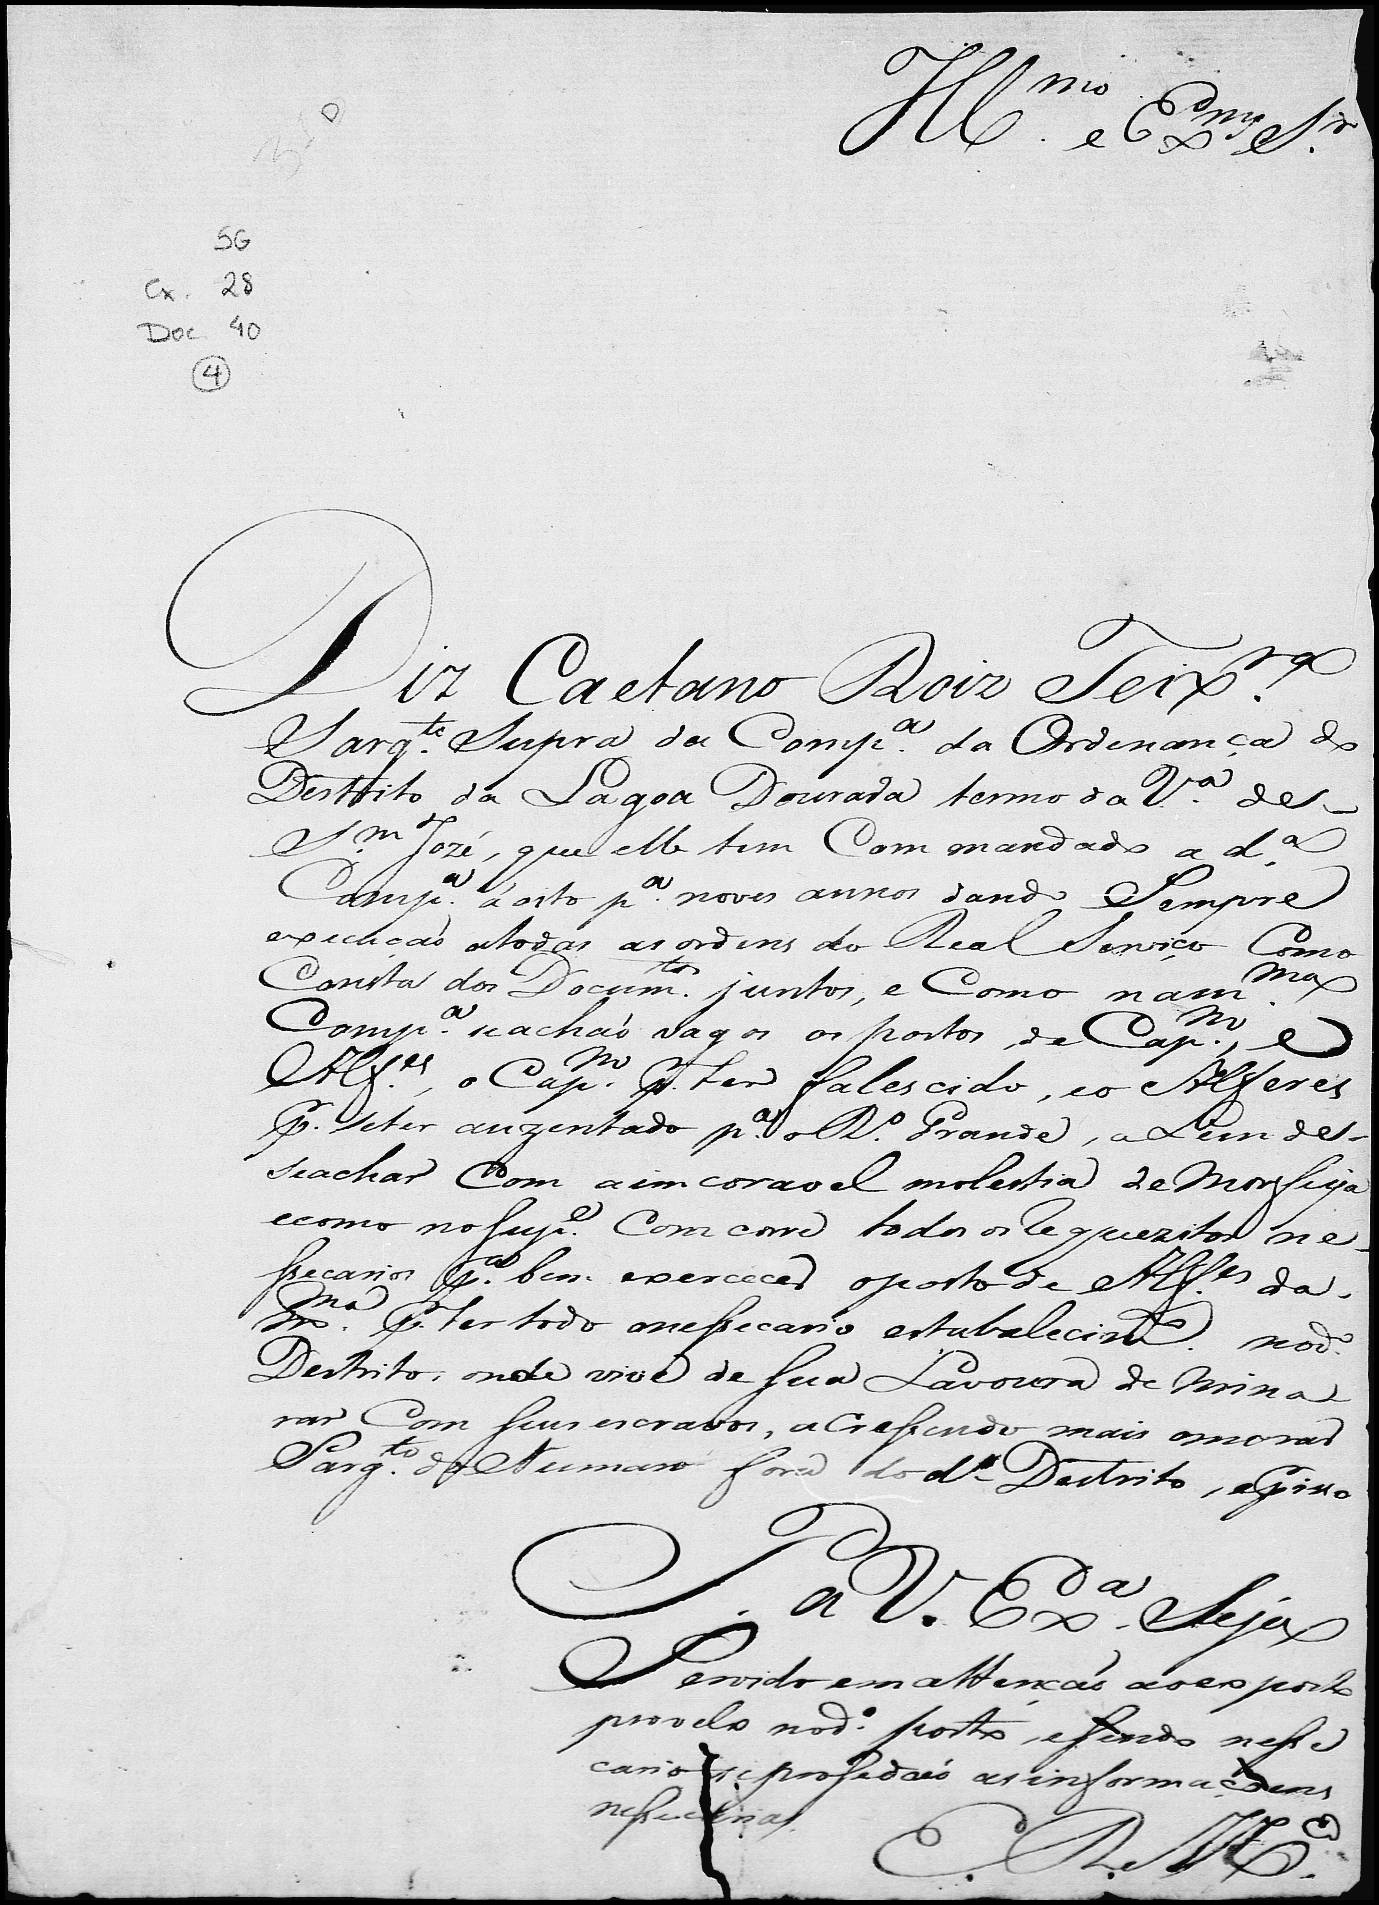 Ill.mo e Ex.mo Sr.
SG
Cx. 28
Doc 40
4
Diz Caetano Roiz Teix.ra
Sarg.te Supra da Comp.a da Ordenança do
Destrito da Lagoa Dourada termo da V.a de S.
S.m Jozé, que elle tem Commandado a d.a
Comp.a á oito p.a noves annos dando Sempre
execução atodas as ordens do Real Serviço Como
Consta dos Docum.tos juntos, e Como nam.ma
Comp.a seachão vagos os postos de Cap.m, e
Alf.es, o Cap.m p. ter falescido, eo Alferes
p. seter auzentado p.a o R.o Grande, aLem des-
seachar Com aimcoravel molestia de Morfeija
ecomo nosup.e Comcorre todos os requezitos ne-
ssecarios p.a bem exerceer oposto de Alf.es da-
m.ma p. ter todo onessecario estabalecim.to nod.o
Destrito, onde vive de sua Lavoura de mina-
rar Com seus escravos, acressendo mais omorar
Sarg.to do Numaro fora do d.o Destrito, e p. isso
P. a V. Ex.a Seja
Servido em attenção ao exposto
provelo nod.o posto, esendo nesse
cario se prosedão as informaçoens
nessecarias.
E. R. M.ce